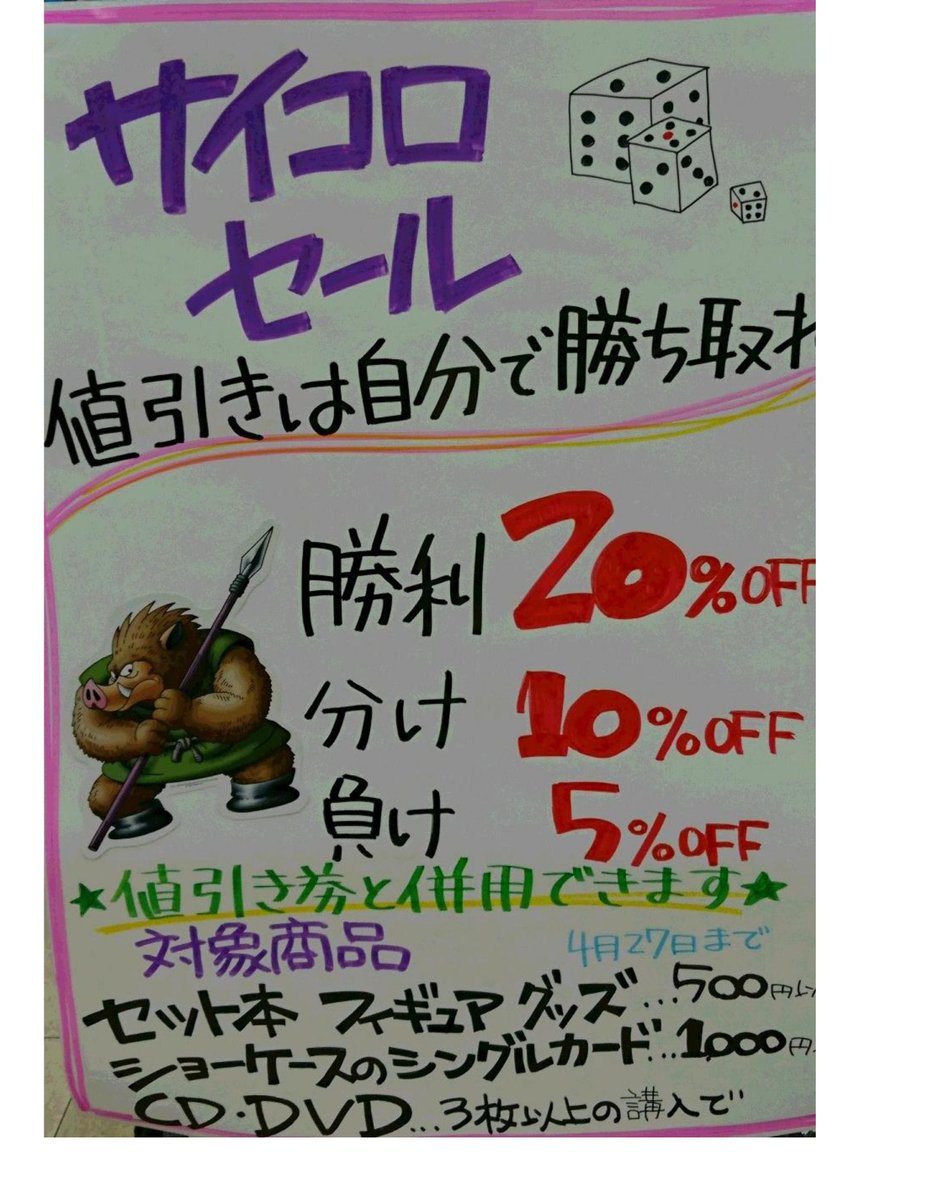 サイコロ
セール
値引きは自分で勝ち取れ
勝利 20%OFF
分け 10%OFF
負け 5%OFF
★値引き券と併用できます★
対象商品 4月27日まで
セット本 フィギュア グッズ...500円以
ショーケースのシングルカード...1,000円
CD・DVD...3枚以上の購入で